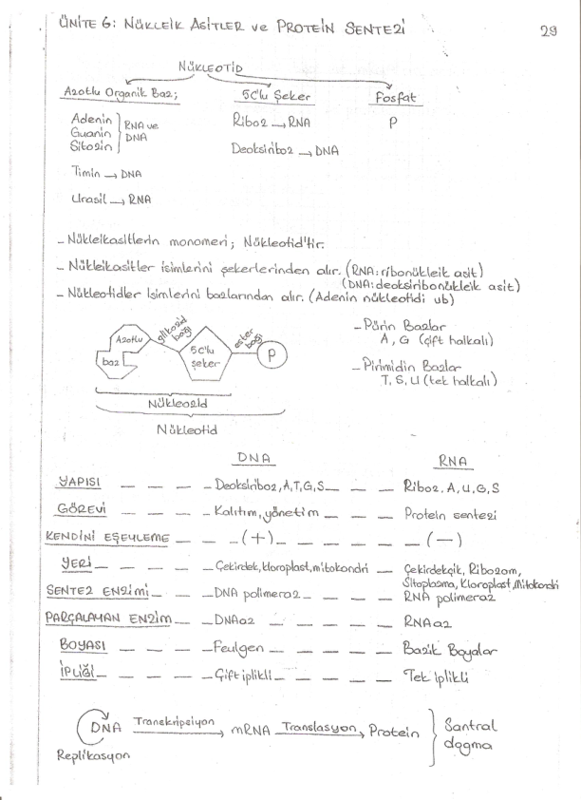 ÜNİTE 6: NÜKLEİK ASİTLER VE PROTEİN SENTEZİ
29
NÜKLEOTİD
Azotlu Organik Baz;
5C'lu Şeker
Fosfat
Adenin
Guanin
Sitozin
RNA ve
DNA
Riboz → RNA
P
Deoksiriboz → DNA
Timin → DNA
Urasil → RNA
- Nükleikasitlerin monomeri; Nükleotid'tir.
- Nükleikasitler isimlerini şekerlerinden alır. (RNA: ribonükleik asit)
(DNA: deoksiribonükleik asit)
- Nükleotidler isimlerini bazlarından alır. (Adenin nükleotidi vb)
Azotlu
baz
glikozid
bağı
5C'lu
şeker
ester
bağı
P
Nükleozid
Nükleotid
- Pürin Bazlar
A, G (çift halkalı)
- Pirimidin Bazlar
T, S, U (tek halkalı)
DNA
RNA
YAPISI - - - - Deoksiriboz, A, T, G, S - - - Riboz, A, U, G, S
GÖREVİ - - - - Kalıtım, yönetim - - - Protein sentezi
KENDİNİ EŞEYLEME - - - (+) - - - - (-)
YERİ - - - - Çekirdek, kloroplast, mitokondri - - Çekirdekçik, Ribozom,
Sitoplazma, Kloroplast, Mitokondri
SENTEZ ENZİMİ - - - DNA polimeraz - - - - RNA polimeraz
PARÇALAYAN ENZİM - - - DNAaz - - - - - RNAaz
BOYASI - - - - Feulgen - - - - - Bazik Boyalar
İPLİĞİ - - - - Çift iplikli - - - - Tek iplikli
DNA Transkripsiyon → mRNA Translasyon → Protein
Replikasyon
Santral
dogma